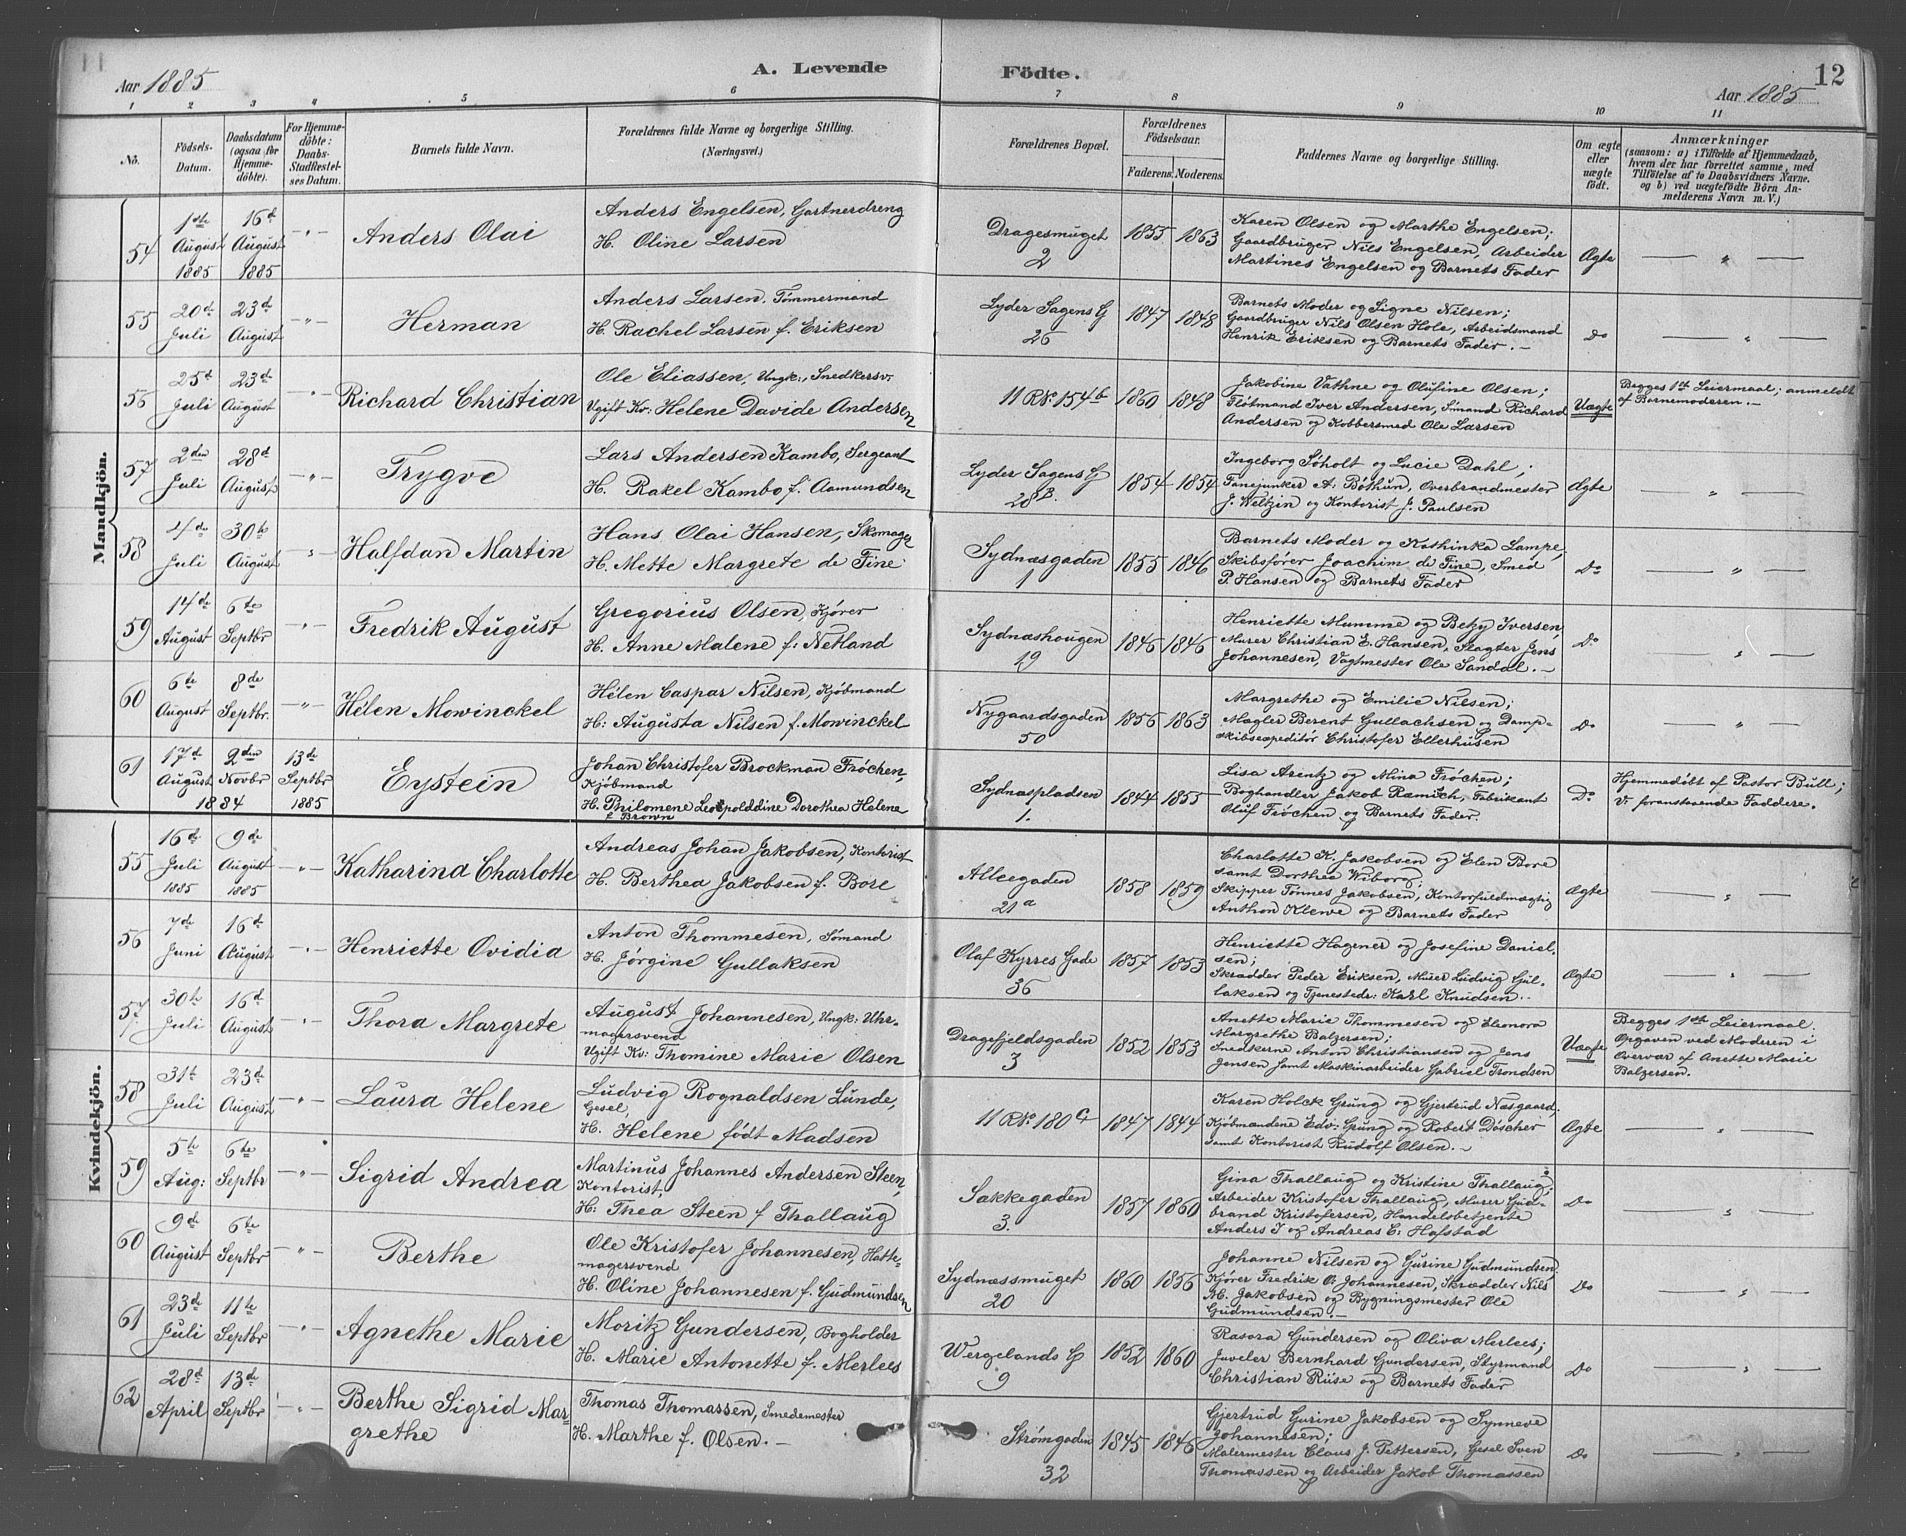 11
12
Aar 1885
A. Levende Födte.
Aar 1885
1 2 3 4 5 6 7 8 9 10 11
No.
Födsels-
Datum.
Daabsdatum
(ogsaa for
Hjemme-
döbte).
For Hjemme-
döbte:
Daabs-
Stadfæstel-
ses Datum.
Barnets fulde Navn.
Forældrenes fulde Navne og borgerlige Stilling.
(Næringsvei.)
Forældrenes Bopæl.
Forældrenes
Födselsaar.
Faderens. Moderens.
Faddernes Navne og borgerlige Stilling.
Om ægte
eller
uægte
födt.
Anmærkninger
(saasom: a) i Tilfælde af Hjemmedaab,
hvem der har forrettet samme, med
Tilföielse af to Daabsvidners Navne,
og b) ved uægtefödte Börn An-
melderens Navn m. V.)
Mandkjön.
54
1ste August 1885
16d August 1885
— " —
Anders Olai
Anders Engelsen, Gartnerdreng
H. Oline Larsen
Dragesmuget
2
1855 1863
Karen Olsen og Marthe Engelsen;
Gaardbruger Nils Engelsen, Arbeider
Martines Engelsen og Barnets Fader
Ægte
— " —
55
20d Juli
23d August
— " —
Herman
Anders Larsen, Tömmermand
H. Rachel Larsen f. Eriksen
Lyder Sagens G
26
1847 1848
Barnets Moder og Signe Nilsen;
Gaardbruger Nils Olsen Hole, Arbeidsmand
Henrik Eriksen og Barnets Fader. —
Do
— " —
56
25d Juli
23d August
— " —
Richard Christian
Ole Eliassen, Ungk:, Snedkersv:
Ugift Kv: Helene Davide Andersen
11 R No 154b
1860 1848
Jakobine Vathne og Olufine Olsen;
Flötmand Iver Andersen, Sömand Richard
Andersen og Kobbersmed Ole Larsen
Uægte
Begges 1ste Leiermaal; anmeldt
af Barnemoderen. —
57
2den Juli
28d August
— " —
Trygve
Lars Andersen Kambo, Sergeant
H. Rakel Kambo f. Aamundsen
Lyder Sagens G
28B.
1854 1854
Ingeborg Söholt og Lucie Dahl;
Fanejunker A. Böthun, Overbrandmester
J. Weltzin og Kontorist J. Paulsen
Ægte
— " —
58
4de Juli
30te August
"
Halfdan Martin
Hans Olai Hansen, Skomager
H. Mette Margrete de Fine
Sydnæsgaden
1
1855 1846
Barnets Moder og Kathinka Lampe,
Skibsförer Joachim de Fine, Smed
P. Hansen og Barnets Fader
Do
— " —
59
14de August
6te Septbr
— " —
Fredrik August
Gregorius Olsen, Kjörer
H. Anne Malene f: Netland
Sydnæshougen
19
1846 1846
Henriette Mumme og Betzy Iversen,
Murer Christian E. Hansen, Slagter Jens
Johannesen, Vagtmester Ole Sandal. —
Do
— " —
60
6te August
8de Septbr.
— " —
Hélen Mowinckel
Hélen Caspar Nilsen, Kjöbmand
H: Augusta Nilsen f. Mowinckel
Nygaardsgaden
50
1856 1863
Margrethe og Emilie Nilsen;
Mægler Berent Gullachsen og Damp-
skibsexpeditör Christofer Ellerhusen
Do
— " —
61
17de August
2den Novbr
1884
13de Septbr 1885
Eystein
Johan Christofer Brockman Fröchen,
Kjöbmand
H. Philomene Leopolddine Dorothea Halena
f Brown
Sydnæspladsen
1.
1844 1855
Lisa Arentz og Mina Fröchen;
Boghandler Jakob Ræmich, Fabrikant
Oluf Fröchen og Barnets Fader.
Do
Hjemmedöbt af Pastor Bull;
V: foranstaaende Faddere.
Kvindekjön.
55
16de Juli 1885
9de August 1885
— " —
Katharina Charlotte
Andreas Johan Jakobsen, Kontorist
H. Berthea Jakobsen f. Bore
Alleegaden
21a
1858 1859
Charlotte K. Jakobsen og Elen Bore
samt Dorthea Wiborg;
Skipper Tönnes Jakobsen, Kontorfuldmægtig
Anthon Klewe og Barnets Fader
Ægte
— " —
56
7de Juni
16d August
— " —
Henriette Ovidia
Anton Thommesen, Sömand
H. Jörgine Gullaksen
Olaf Kyrres Gade
36
1857 1853
Henriette Hagener og Josefine Daniel-
sen;
Skrædder Peder Eriksen, Murer Ludvig Gul-
laksen og Tjenestedr: Karl Knudsen. —
Ægte
— " —
57
30te Juli
16d August
— " —
Thora Margrete
August Johannesen, Ungk: Uhr-
magersvend
Ugift Kv: Thomine Marie Olsen
Dragefjeldsgaden
3
1852 1853
Anette Marie Thommesen og Eleonora
Margrethe Balzersen;
Snedkerne Anton Christiansen og Jens
Jensen samt Maskinarbeider Gabriel Trondsen
Uægte
Begges 1ste Leiermaal.
Opgaven ved Moderen i
Overvær af Anette Marie
Balzersen.
58
31t Juli
23de August
— " —
Laura Helene
Ludvig Rognaldsen Lunde,
Gesel,
H. Helene födt Madsen
11 R No 180a
1847 1844
Karen Holck Grung og Gjertrud Næsgaard,
Kjöbmændene Edv: Grung og Robert Döscher
samt Kontorist Rudolf Olsen. —
Ægte
— " —
59
5te Aug:
6te Septbr
— " —
Sigrid Andrea
Martinus Johannes Andersen Steen,
Kontorist,
H: Thea Steen f Thallaug
Sakkegaden
3.
1857 1860
Gina Thallaug og Kristine Thallaug;
Arbeider Kristofer Thallaug, Murer Gud-
brand Kristofersen, Handelsbetjente
Anders J og Andreas E. Hofstad
Do
— " —
60
9de August
6te Septbr
— " —
Berthe
Ole Kristofer Johannesen, Hatte-
magersvend
H. Oline Johannesen f. Gudmundsen
Sydnæssmuget
20
1860 1856
Johanne Nilsen og Gurine Gudmundsen
Kjörer Fredrik O. Johannesen, Skrædder Nils
M. Jakobsen og Bygningsmester Ole
Gudmundsen. —
Do
— " —
61
23de Juli
11te Septbr
— " —
Agnethe Marie
Moritz Gundersen, Bogholder
H. Marie Antonette f. Merlees
Wergelands G
9
1852 1860
Rasora Gundersen og Oliva Merlees;
Juveler Bernhard Gundersen, Styrmand
Christian Riise og Barnets Fader
Do
— " —
62
28d April
13de Septbr
— " —
Berthe Sigrid Mar-
grethe
Thomas Thomassen, Smedemester
H. Marthe f. Olsen. —
Strömgaden
32
1845 1846
Gjertrud Gurine Jakobsen og Synneve
Johannesen;
Malermester Claus J. Pettersen, Gesel Sven
Thomassen og Arbeider Jakob Thomassen
Do
— " —